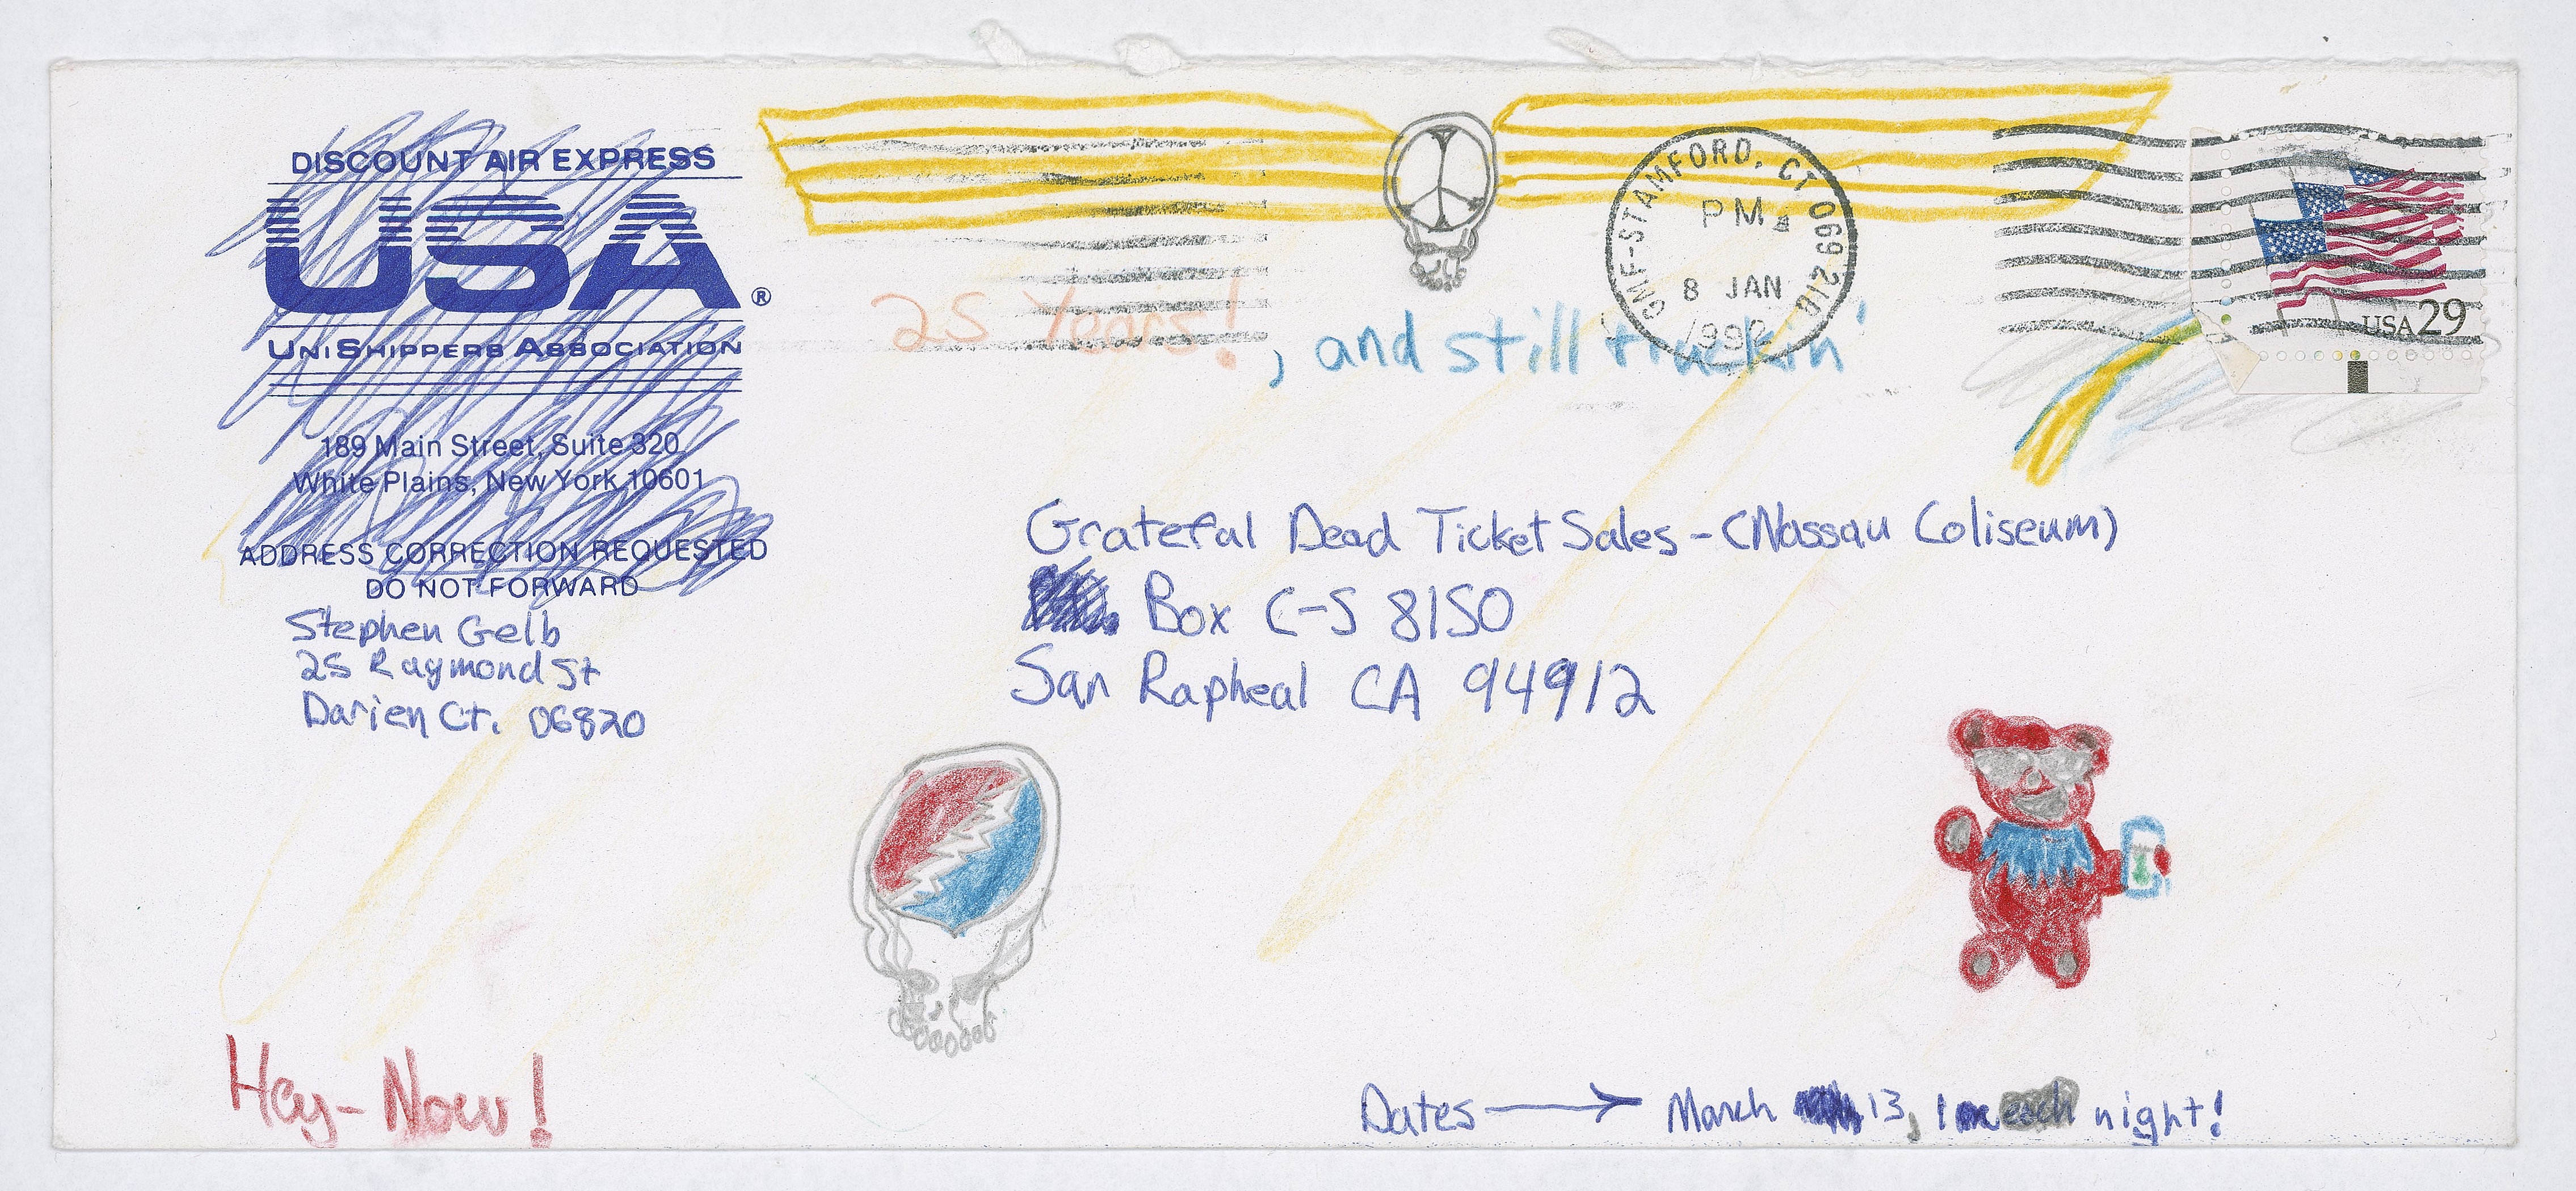 DISCOUNT AIR EXPRESS
USA®
UNISHIPPERS ASSOCIATION
189 Main Street, Suite 320
White Plains, New York 10601
ADDRESS CORRECTION REQUESTED
DO NOT FORWARD
Stephen Gelb
25 Raymond St
Darien Ct. 06820
25 Years!, and still truckin'
GMF-STAMFORD, CT 069 21G
PM
8 JAN
USA 29
Grateful Dead Ticket Sales - (Nassau Coliseum)
Box C-S 8150
San Rapheal CA 94912
Hey-Now!
Dates → March 13, 1 night!